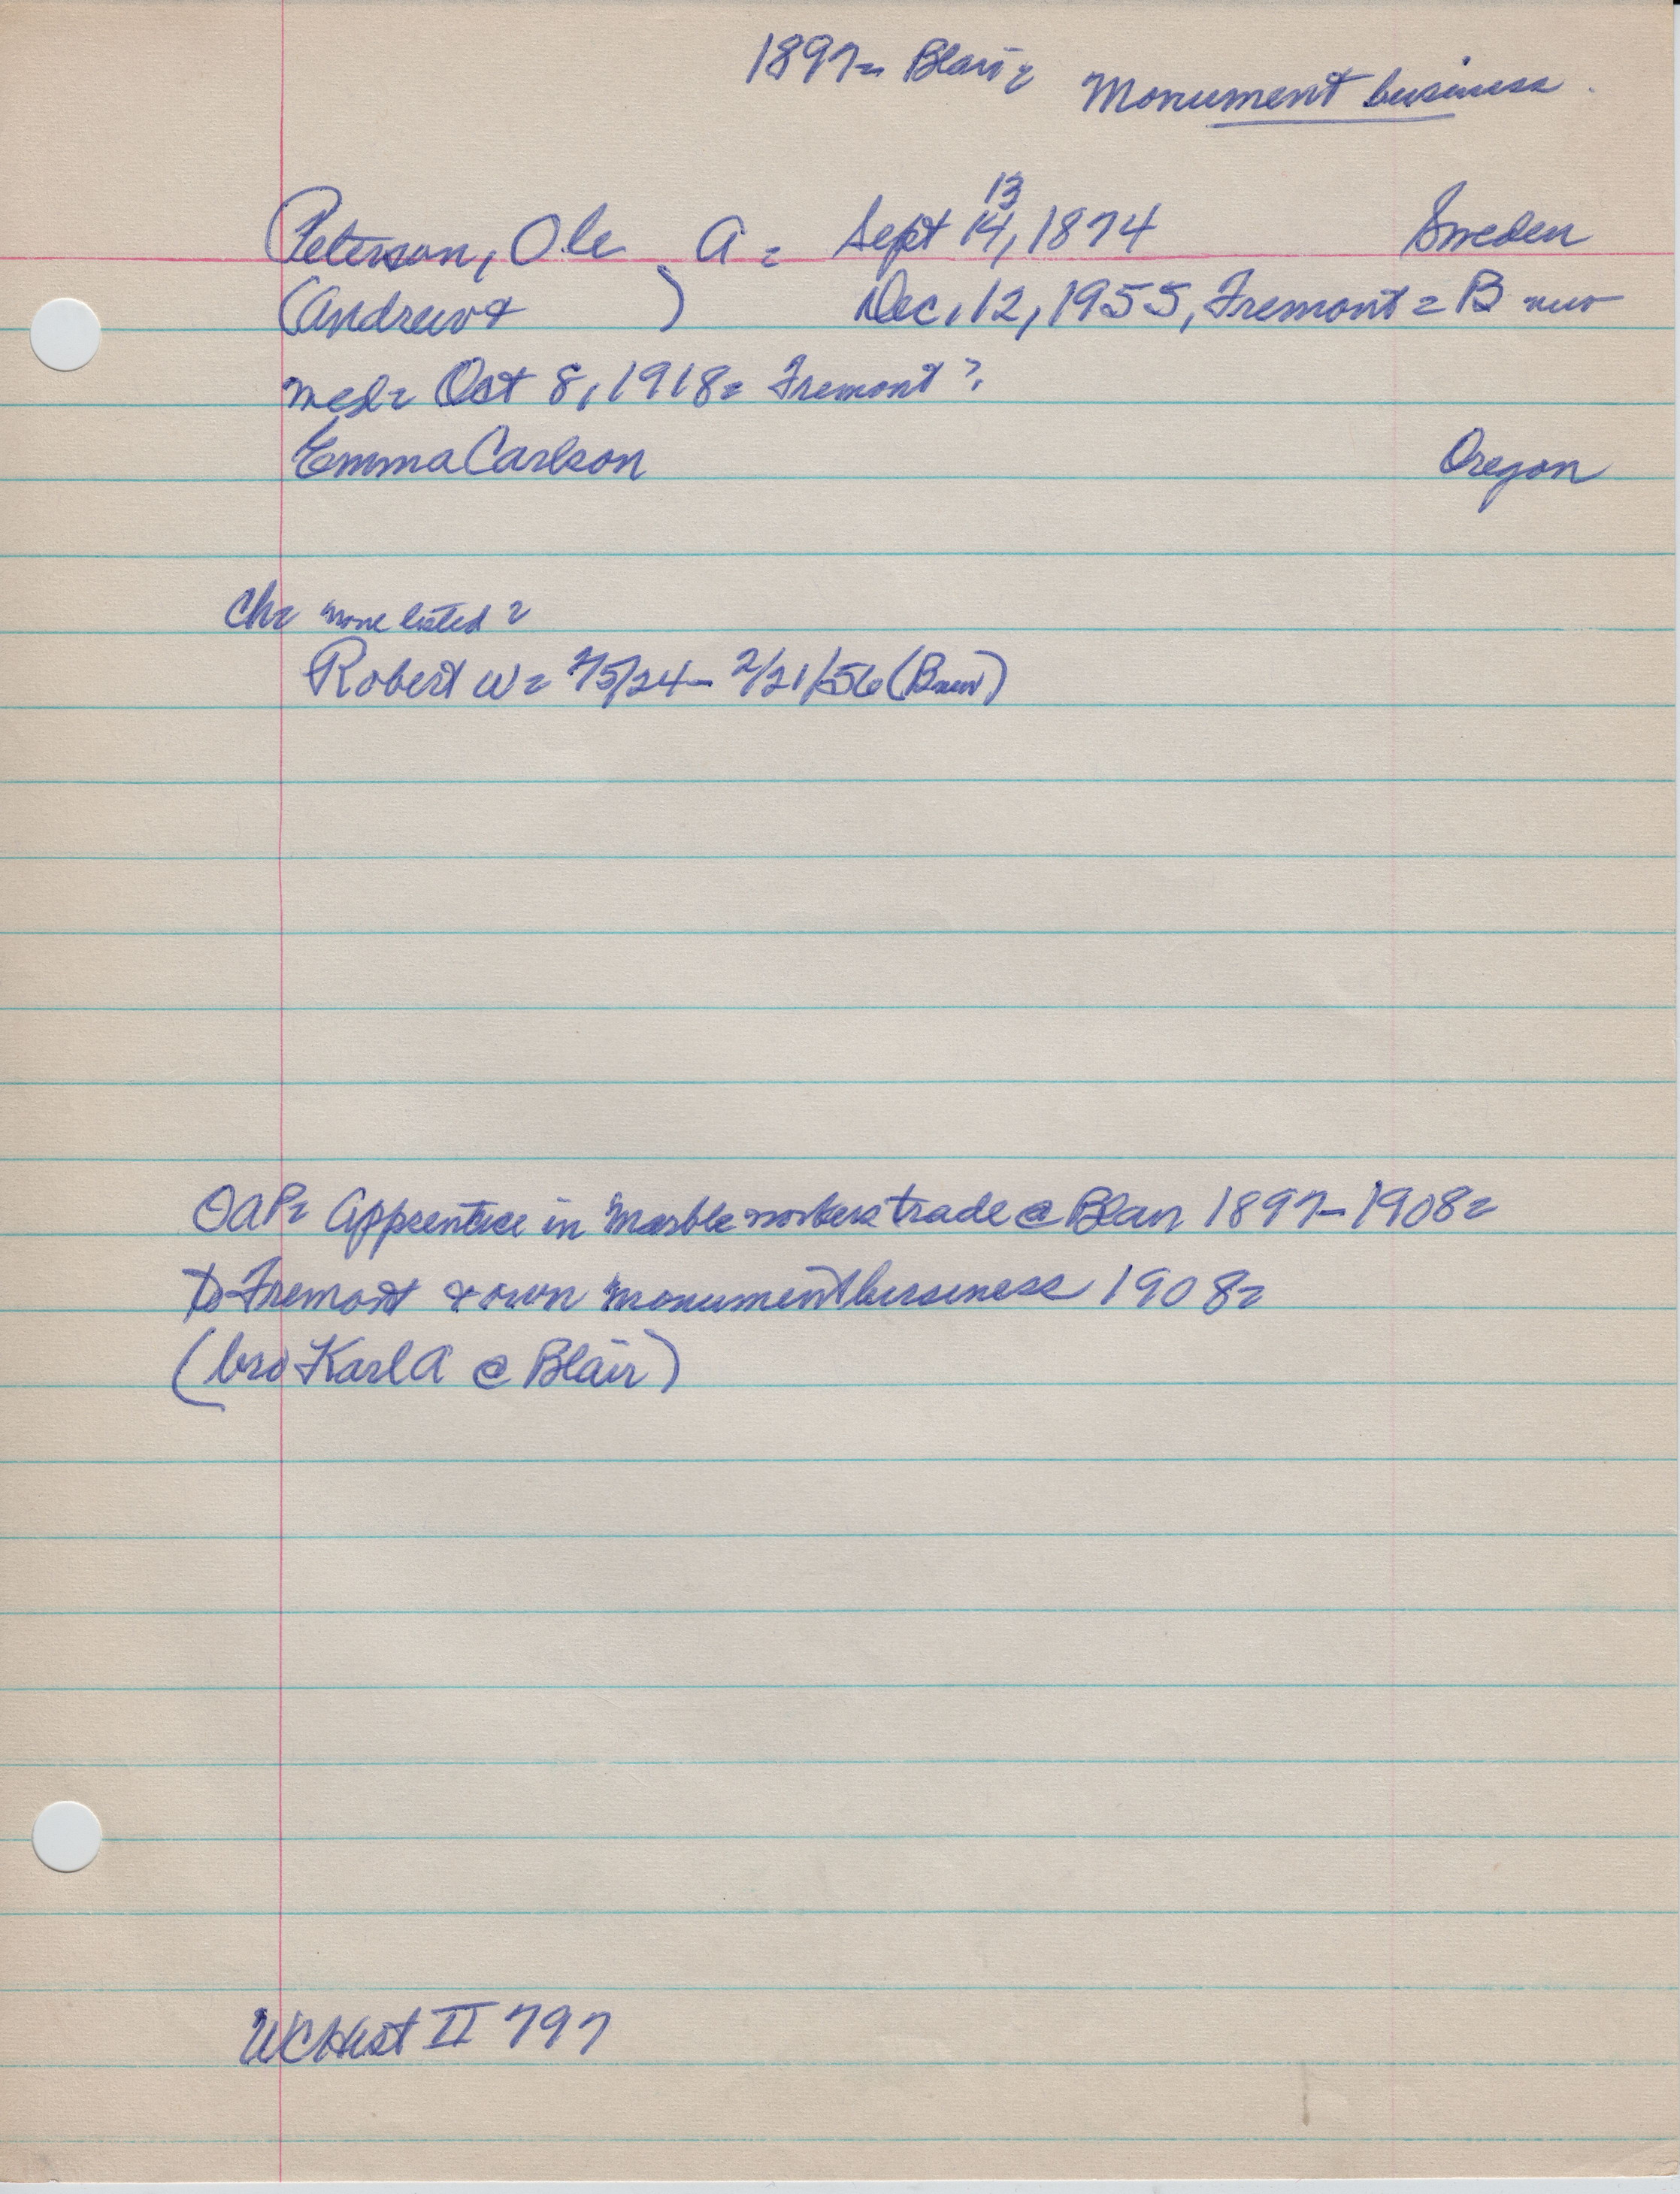 1897= Blair=
Monument business.
13
Peterson, Ole A = Sept 14, 1874 Sweden
(Andrew & ) Dec, 12, 1955, Fremont = B
med= Oct 8, 1918= Fremont?
Emma Carlson Oregon
Ch= none listed?
Robert W= 7/5/24 - 2/21/56 (B)
OAP= Apprentice in Marble workers trade @ Blair 1897-1908=
to Fremont & own monument business 1908=
(bro Karl A @ Blair)
WCHist II 797